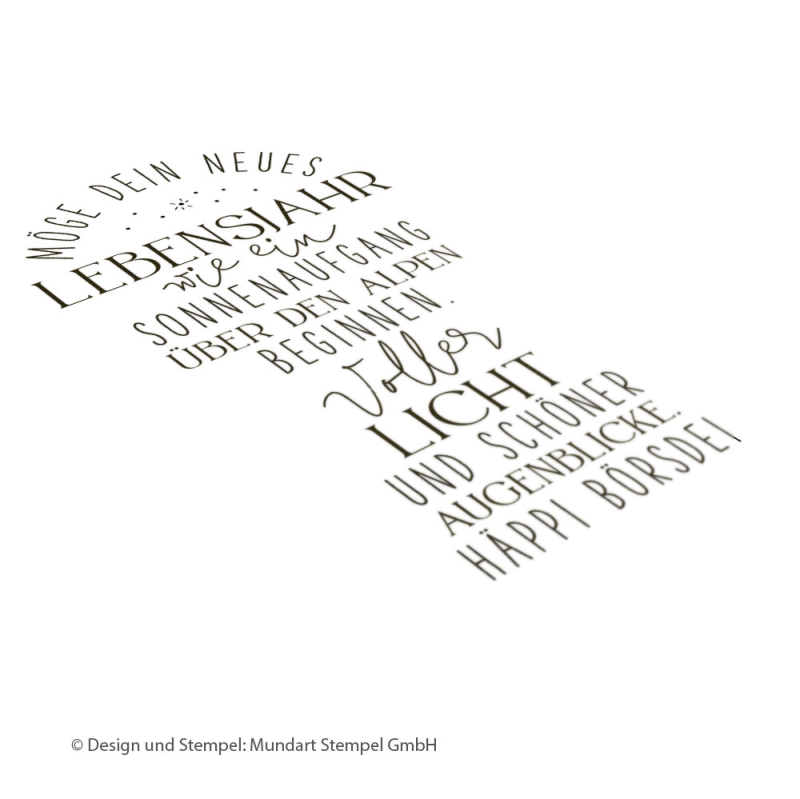 MÖGE DEIN NEUES
LEBENSJAHR
wie ein
SONNENAUFGANG
ÜBER DEN ALPEN
BEGINNEN.
Voller
LICHT
UND SCHÖNER
AUGENBLICKE.
HÄPPI BÖRSDEI
© Design und Stempel: Mundart Stempel GmbH